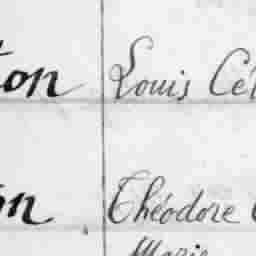 ton Louis Cé
on Théodore
Marie